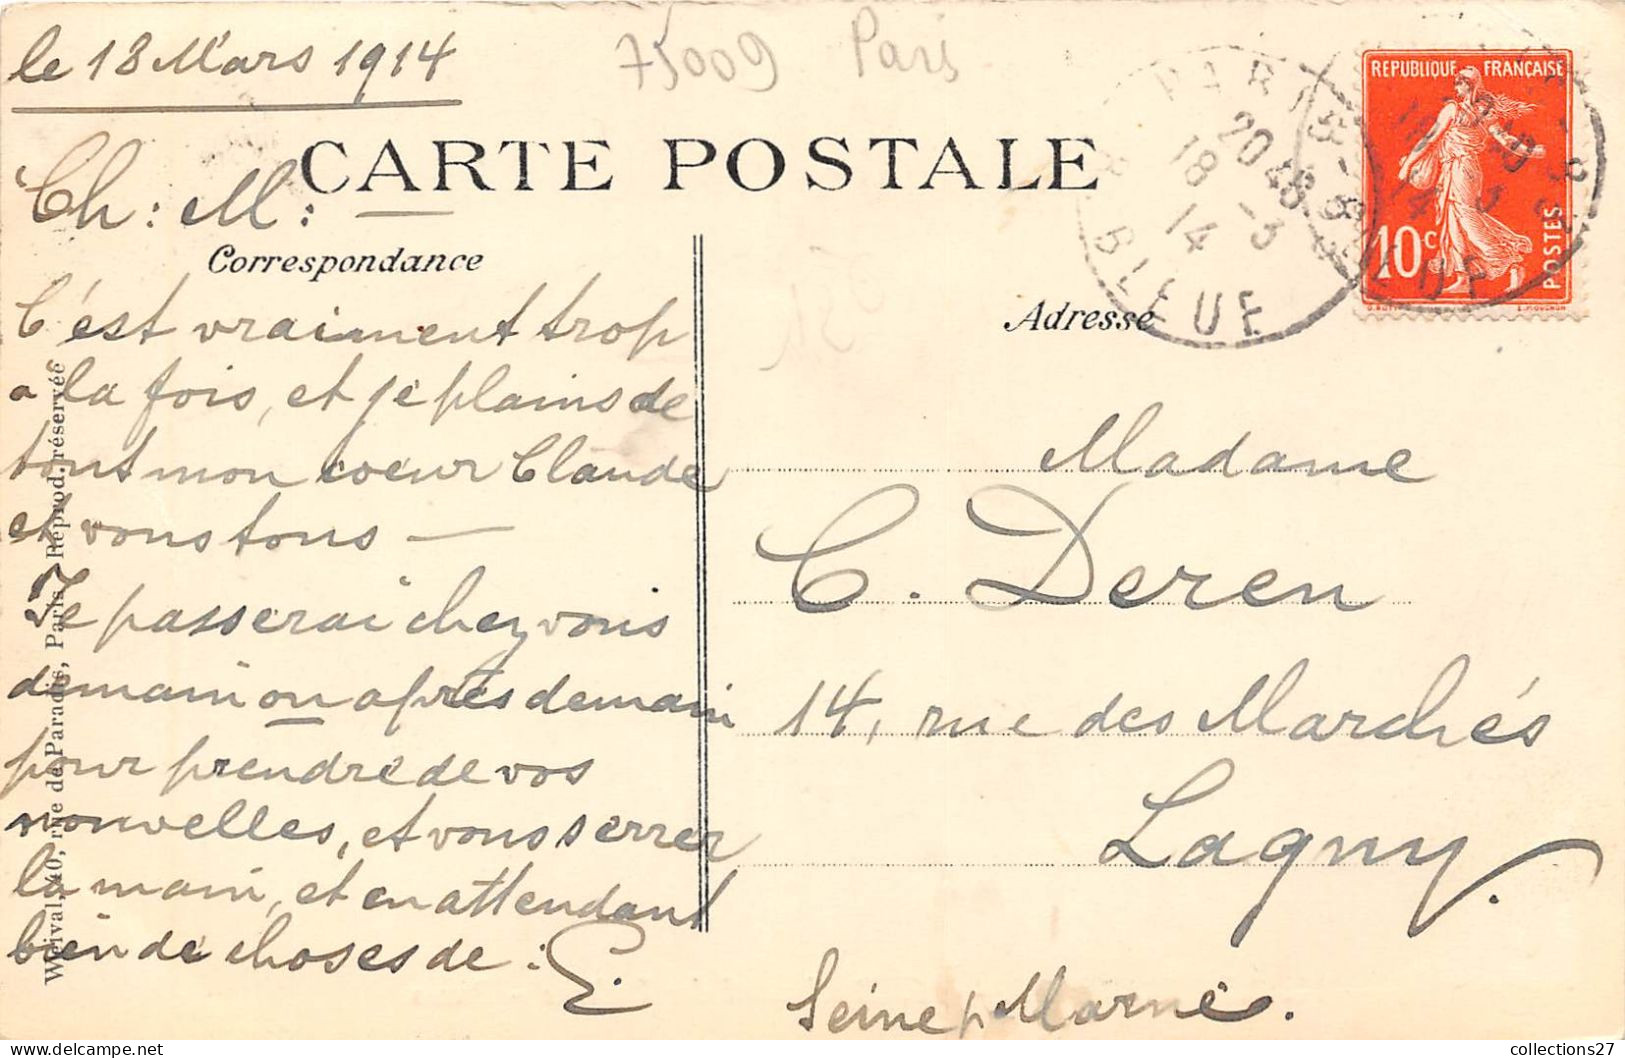 le 18 Mars 1914
75009 Paris
CARTE POSTALE
Ch : M :
Correspondance
C'est vraiment trop
a la fois, et je plains de
tout mon coeur Claude
et vous tous —
Je passerai chez vous
demain ou après demain
pour prendre de vos
nouvelles, et vous serrer
la main, et en attendant
bien de choses de : E.
Weival, 40, rue de Paradis, Paris. Reprod. réservée
REPUBLIQUE FRANÇAISE
10c
POSTES
PARIS
20 48
18 -3
14
BLEUE
Adresse
Madame
C. Deren
14, rue des Marchés
Lagny.
Seine p Marne.
collections27